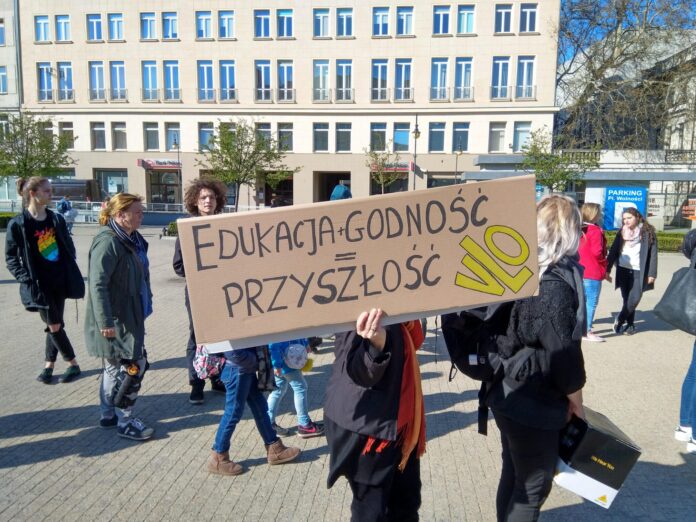 EDUKACJA+GODNOŚĆ
=
PRZYSZŁOŚĆ
VLO
PARKING
Pl. Wolności